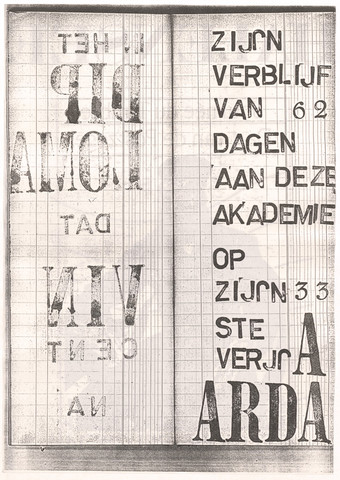 IN HET
DIP
LOMA
DAT
VIN
CENT
NA
ZIJN
VERBLIJF
VAN 62
DAGEN
AAN DEZE
AKADEMIE
OP
ZIJN 33
STE
VERJA
ARDA